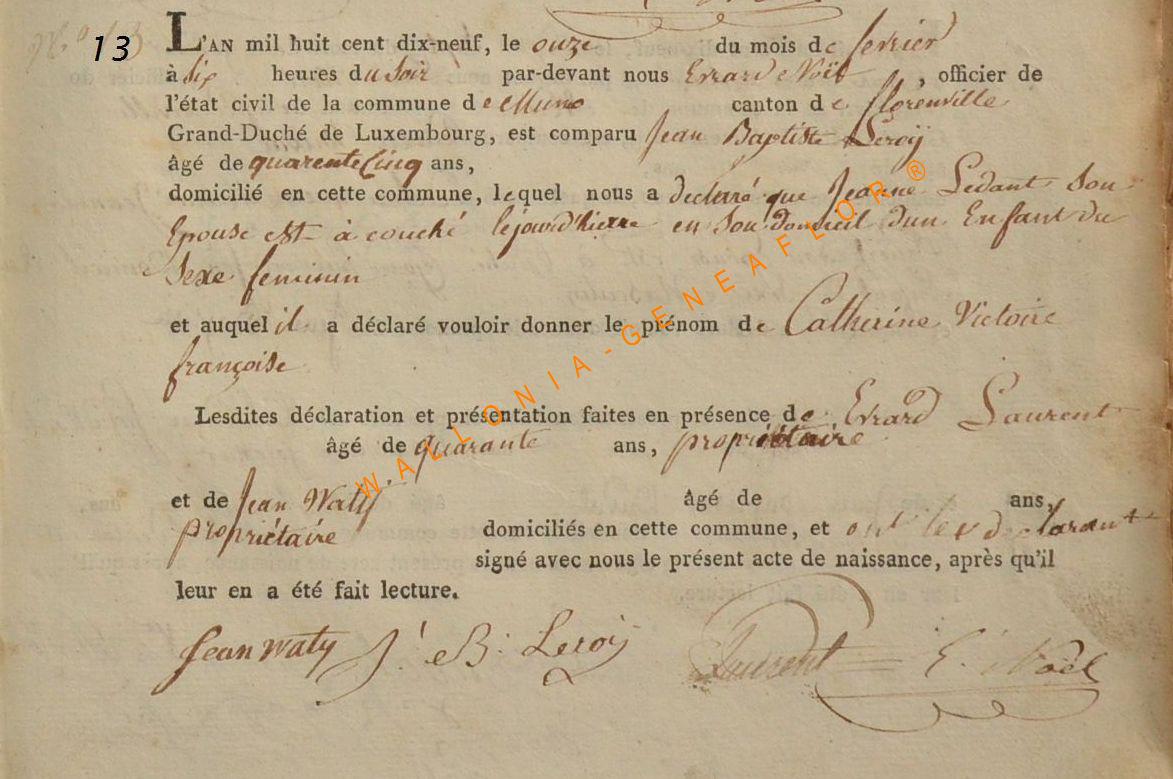 N.o 13 L'AN mil huit cent dix-neuf, le onze du mois de fevrier
à six heures du soir par-devant nous Evrard Noël, officier de
l'état civil de la commune de Muno canton de florenville
Grand-Duché de Luxembourg, est comparu Jean Baptiste Leroÿ
âgé de quarente Cinq ans,
domicilié en cette commune, lequel nous a declarré que Jeanne Ledant Son
Epouse est à couché le jourd'hierre en Son domicil dun Enfant du
Sexe feminin
et auquel il a déclaré vouloir donner le prénom de Catherine Victoire
françoise
Lesdites déclaration et présentation faites en présence de Evrard Laurent
âgé de quarante ans, propriétaire
et de Jean Waty âgé de ans,
propriétaire domiciliés en cette commune, et ont les declarant
signé avec nous le présent acte de naissance, après qu'il
leur en a été fait lecture.
Jean Waty J. B. Leroÿ Laurent E. Noël
WALLONIA-GENEAFLOR®